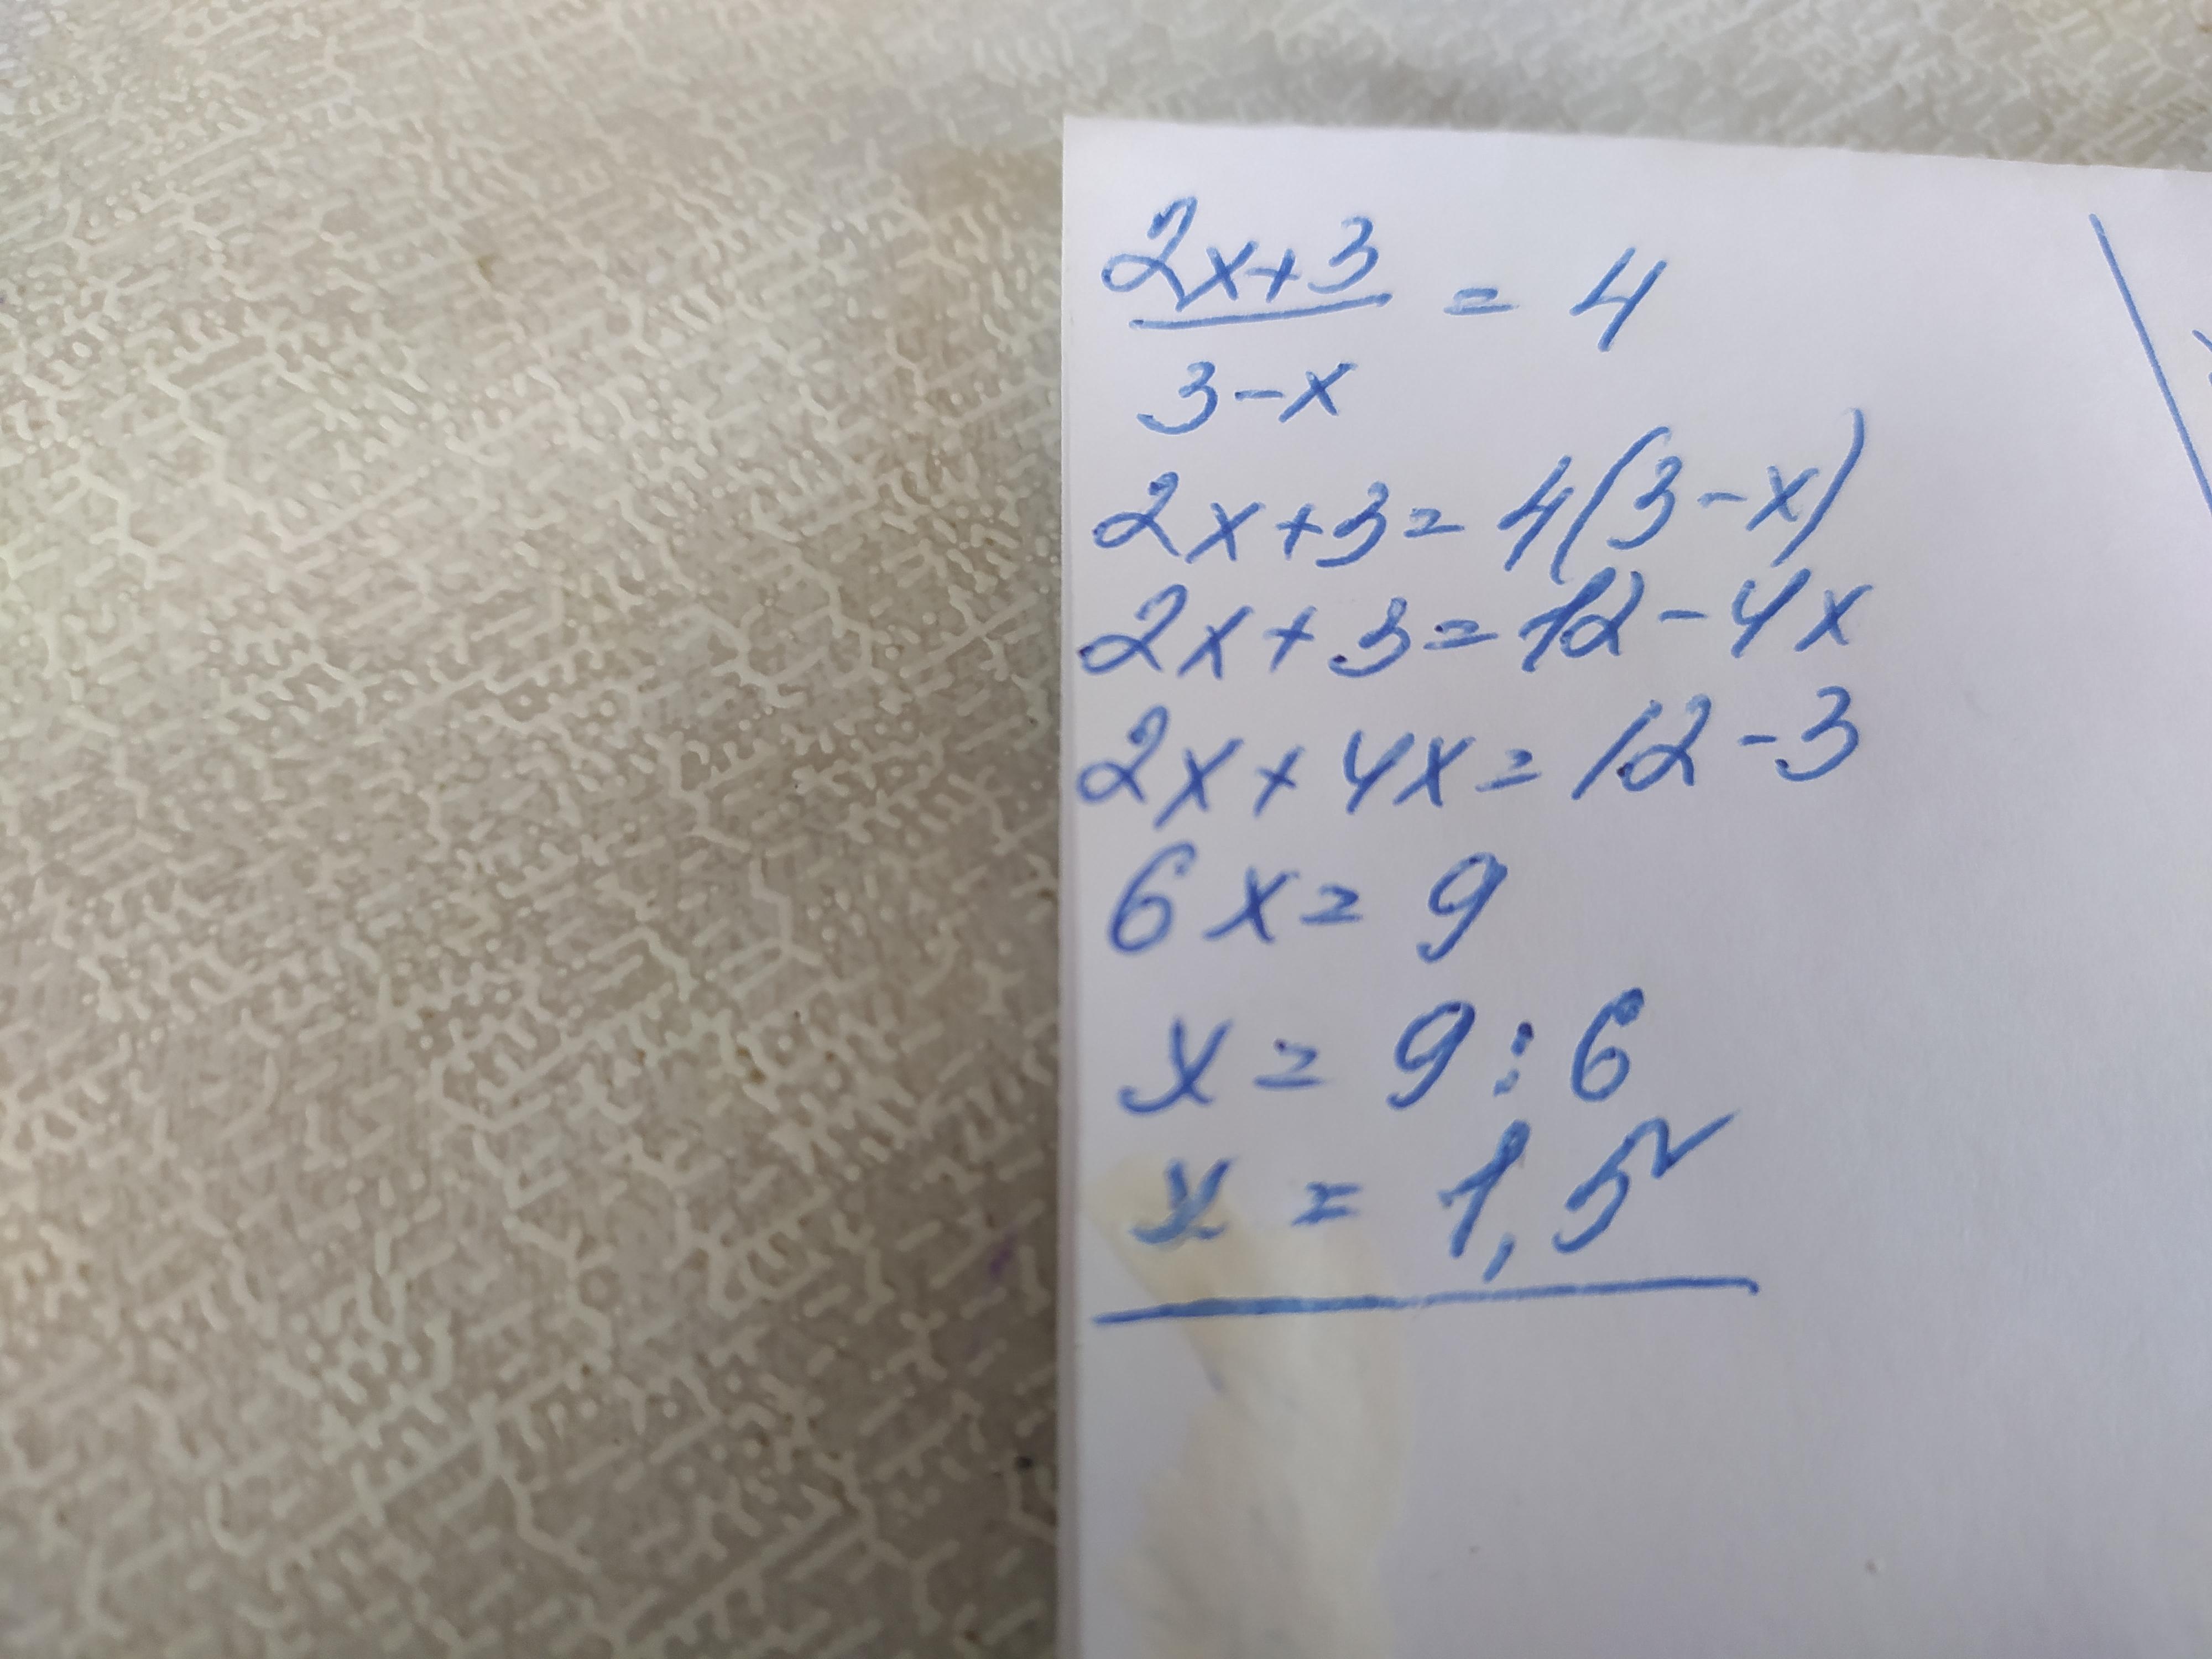 2x+3
3-x = 4
2x+3=4(3-x)
2x+3=12-4x
2x+4x=12-3
6x=9
x=9:6
x=1,5